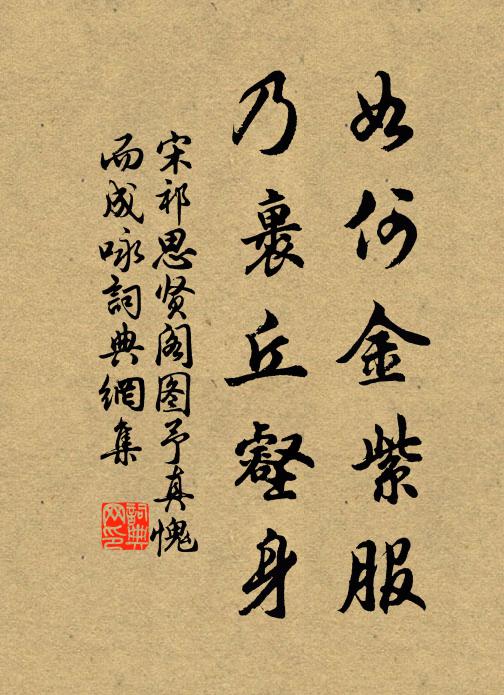 如何金紫服
乃裹丘壑身
宋祁思贤阁图予真愧
而成咏詞典網集
詞典網印